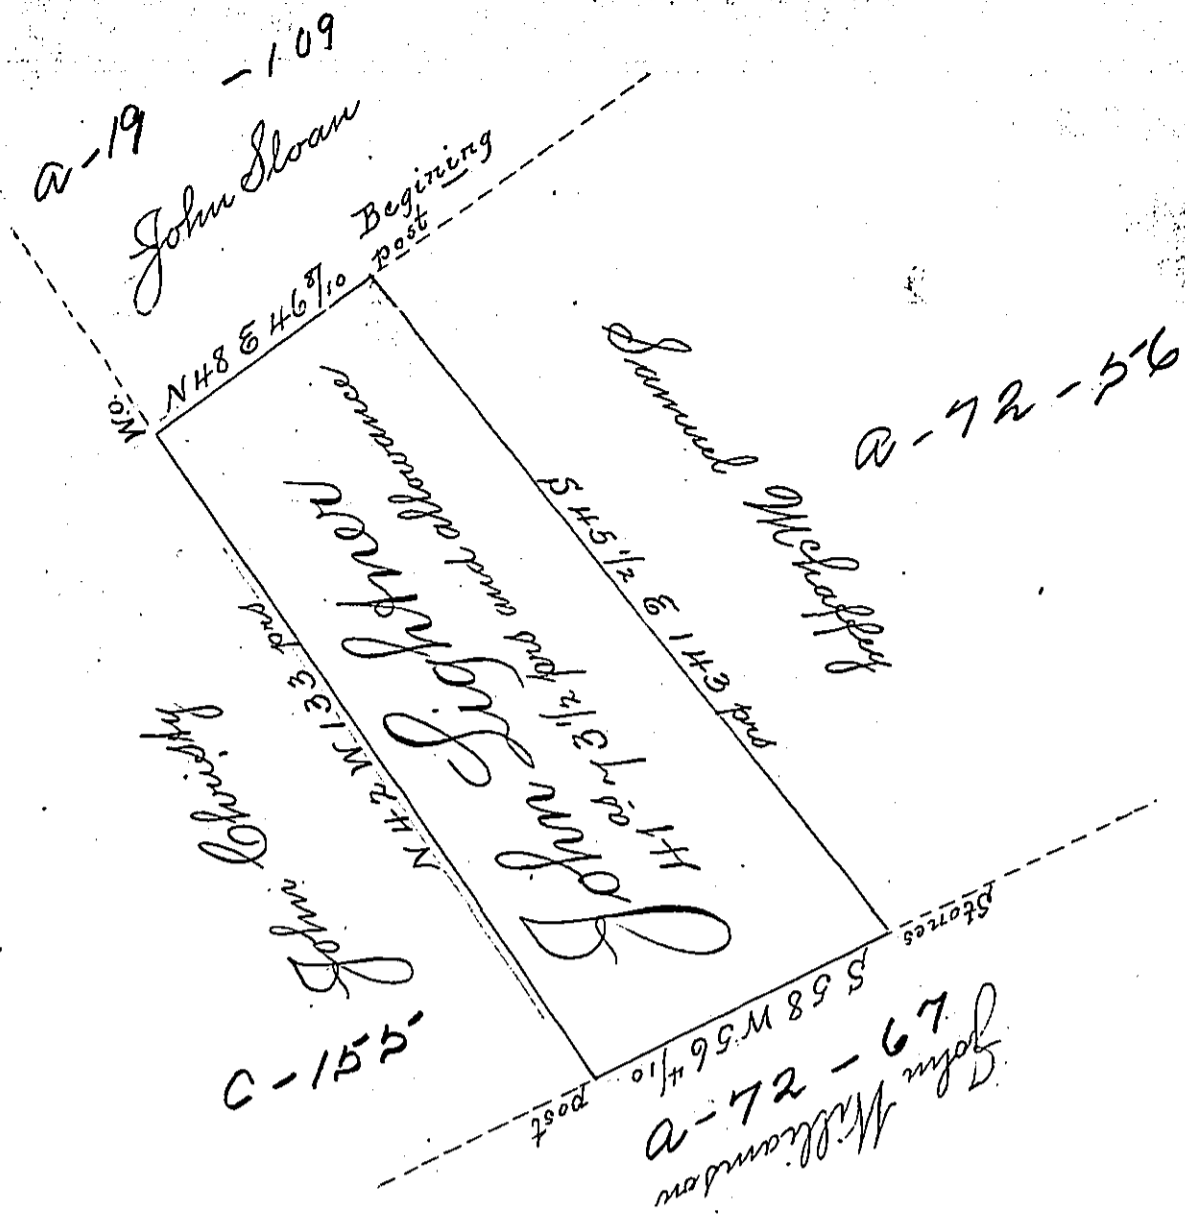 a-19 -109
John Sloan
Begining
post
N 48 E 46 8/10
W.O.
Samuel Mehaffey
a-72-56
S 45 1/2 E 143 prs
John Lightner
41 as 73 1/2 prs and allowance
N 42 W 133 prs
John Christy
C-155
Stones
S 58 W 56 4/10
post
a-72-67
John Williamson